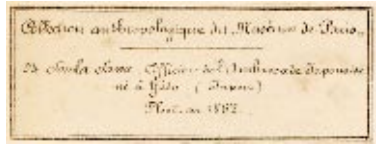 Collection anthropologique du Muséum de Paris.
Officier de l'Ambassade Japonaise
né à Yédo (Japon)
Phot. en 1862.